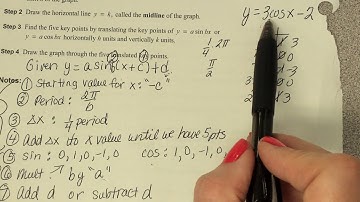 Step 2 Draw the horizontal line y = k, called the midline of the graph.
Step 3 Find the five key points by translating the key points of y = a sin bx or
y = a cos bx horizontally h units and vertically k units.
Step 4 Draw the graph through the five translated key points.
Given y = a sin(bx + c) + d
Notes:
① Starting value for x: "-c"
② Period: 2π/b
③ Δx: 1/4 period
④ Add Δx to x value until we have 5 pts
⑤ sin: 0, 1, 0, -1, 0 cos: 1, 0, -1, 0,
⑥ Mult by "a"
⑦ Add d or subtract d
y = 3cosx - 2
1/4 · 2π
π/2